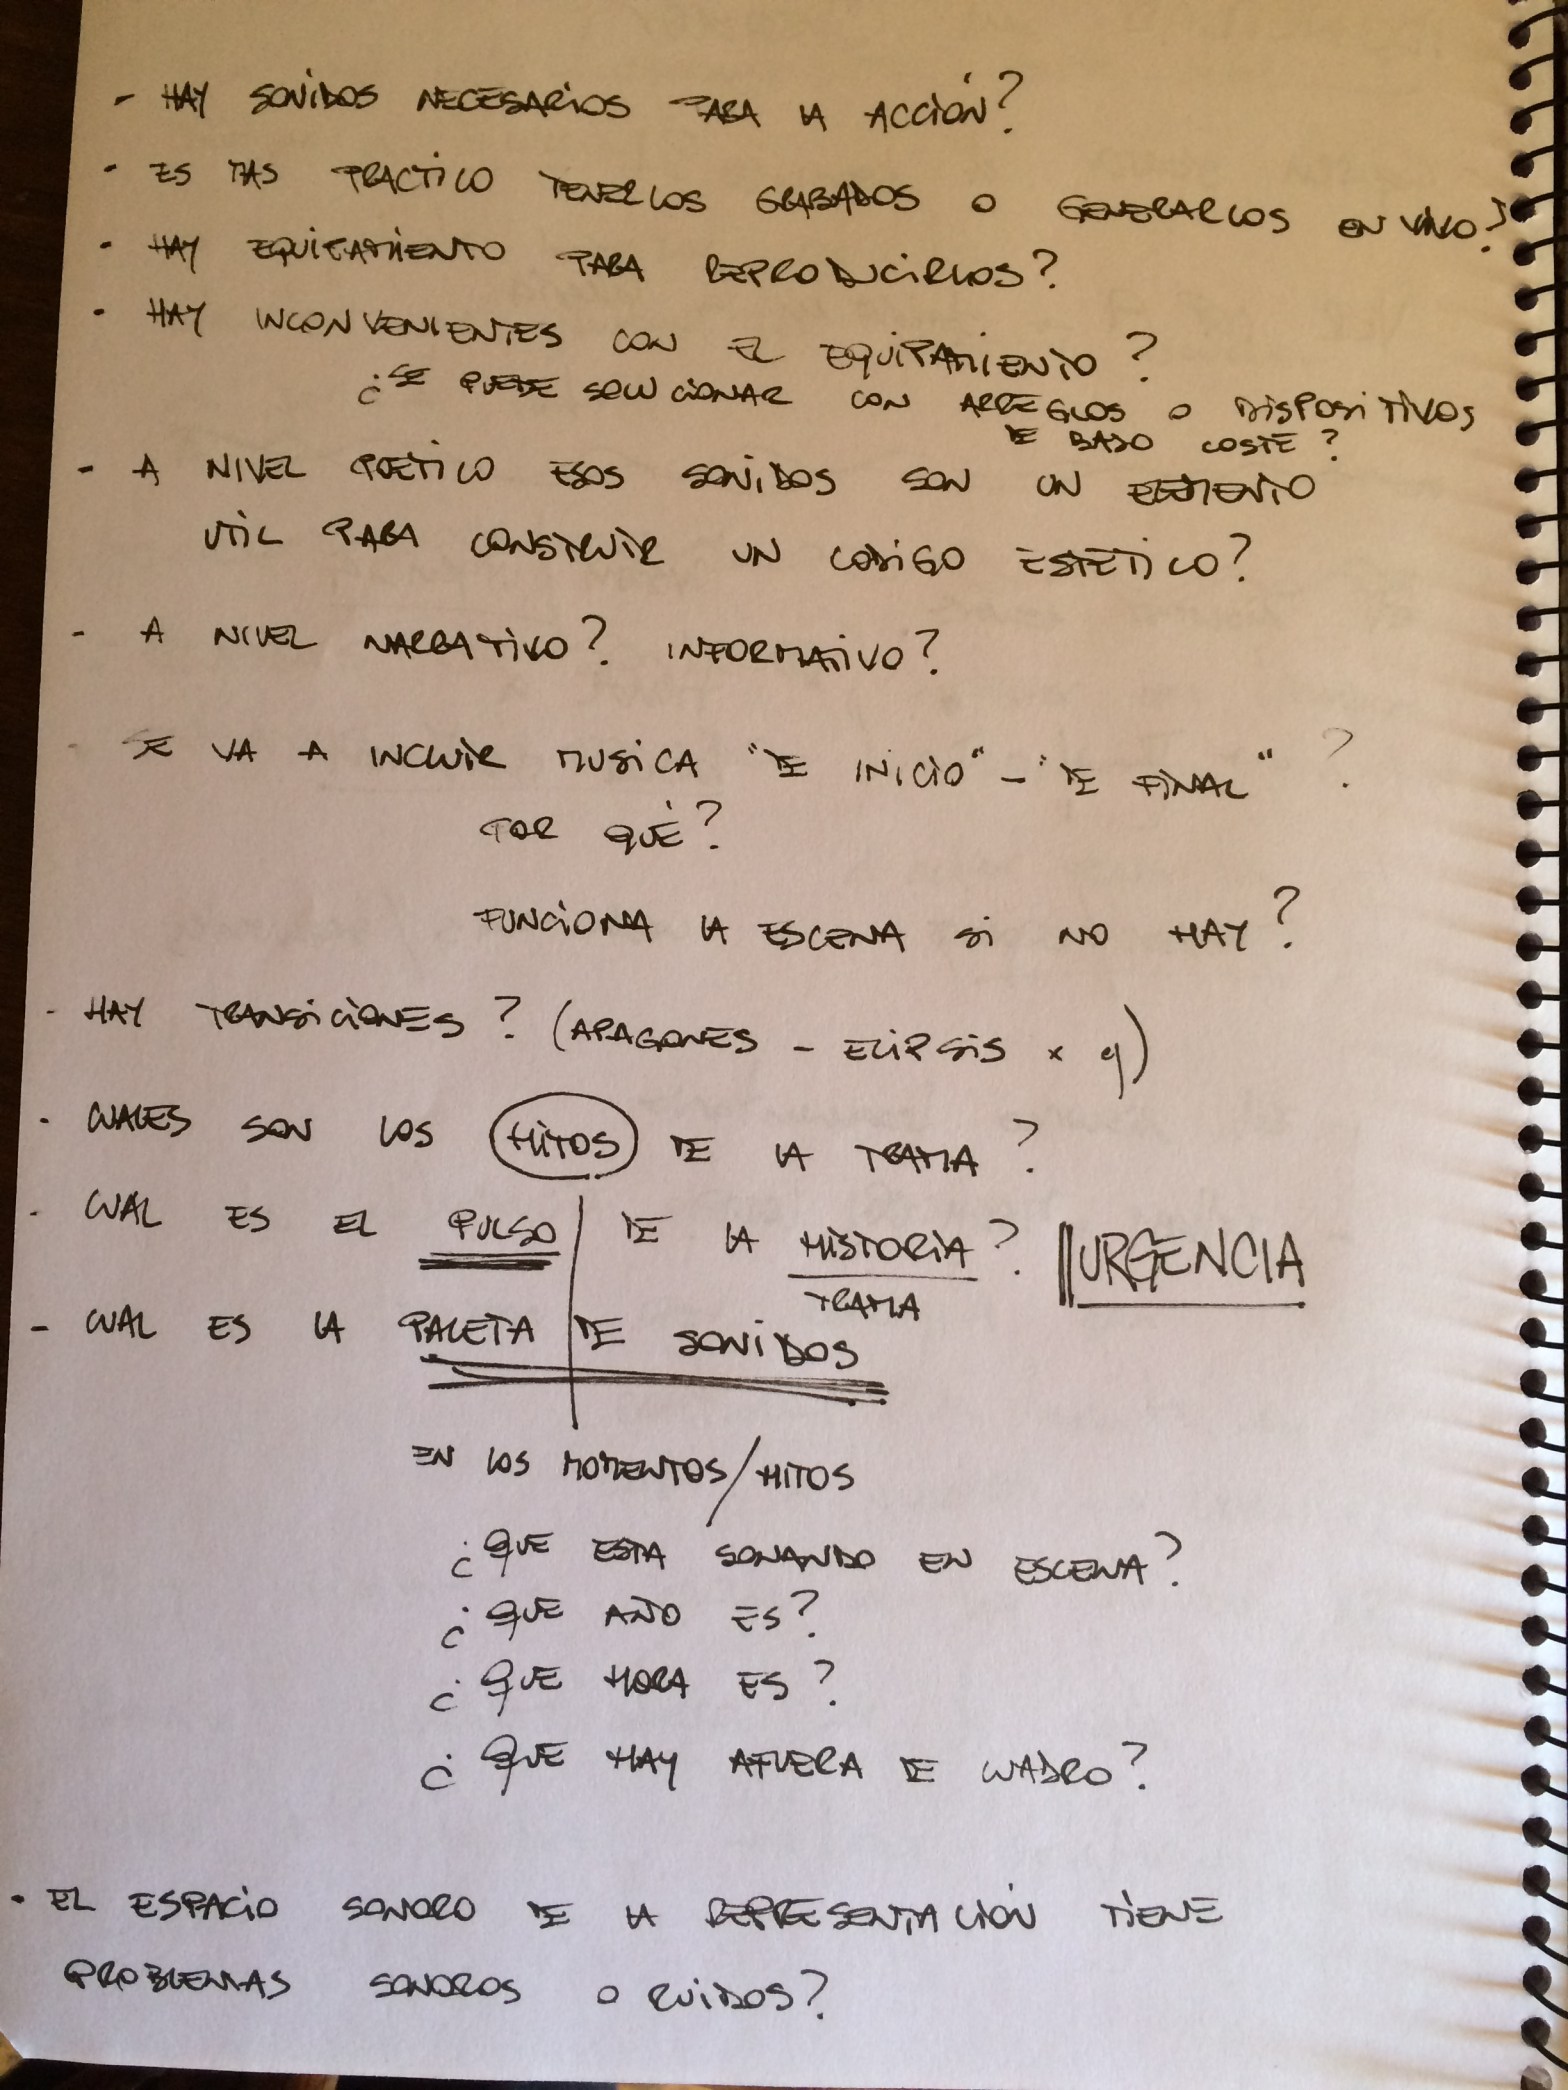 - HAY SONIDOS NECESARIOS PARA LA ACCIÓN?
- ES MAS PRACTICO TENERLOS GRABADOS O GENERARLOS EN VIVO?
- HAY EQUIPAMIENTO PARA REPRODUCIRLOS?
- HAY INCONVENIENTES CON EL EQUIPAMIENTO?
¿SE PUEDE SOLUCIONAR CON ARREGLOS O DISPOSITIVOS
DE BAJO COSTE?
- A NIVEL POETICO ESOS SONIDOS SON UN ELEMENTO
UTIL PARA CONSTRUIR UN CODIGO ESTETICO?
- A NIVEL NARRATIVO? INFORMATIVO?
- SE VA A INCLUIR MUSICA "DE INICIO" - "DE FINAL" ?
POR QUÉ?
FUNCIONA LA ESCENA SI NO HAY?
- HAY TRANSICIONES? (APAGONES - ELIPSIS x q)
- CUALES SON LOS HITOS DE LA TRAMA?
- CUAL ES EL PULSO DE LA HISTORIA? URGENCIA
TRAMA
- CUAL ES LA PALETA DE SONIDOS
EN LOS MOMENTOS/HITOS
¿QUE ESTA SONANDO EN ESCENA?
¿QUE AÑO ES?
¿QUE HORA ES?
¿QUE HAY AFUERA DE CUADRO?
- EL ESPACIO SONORO DE LA REPRESENTACIÓN TIENE
PROBLEMAS SONOROS O RUIDOS?